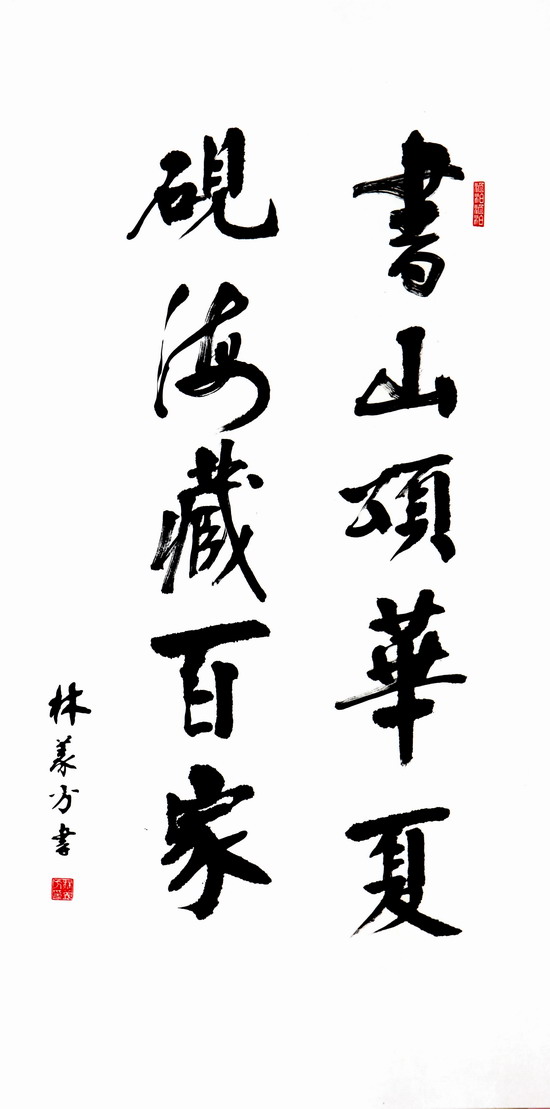 書山頌華夏
硯海藏百家
林義書